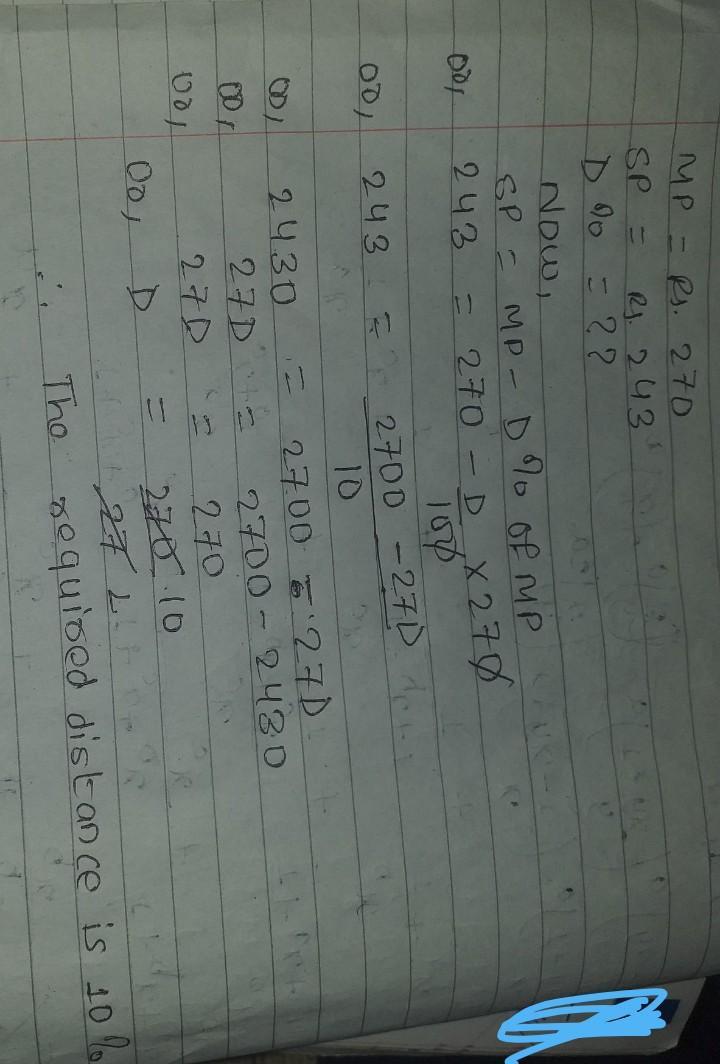 MP = Rs. 270
SP = Rs. 243
D% = ??
Now,
SP = MP - D% of MP
or, 243 = 270 - D/100 × 270
or, 243 = 2700 - 27D / 10
or, 2430 = 2700 - 27D
or, 27D = 2700 - 2430
or, 27D = 270
or, D = 270 10 / 27 1
∴ The required distance is 10%